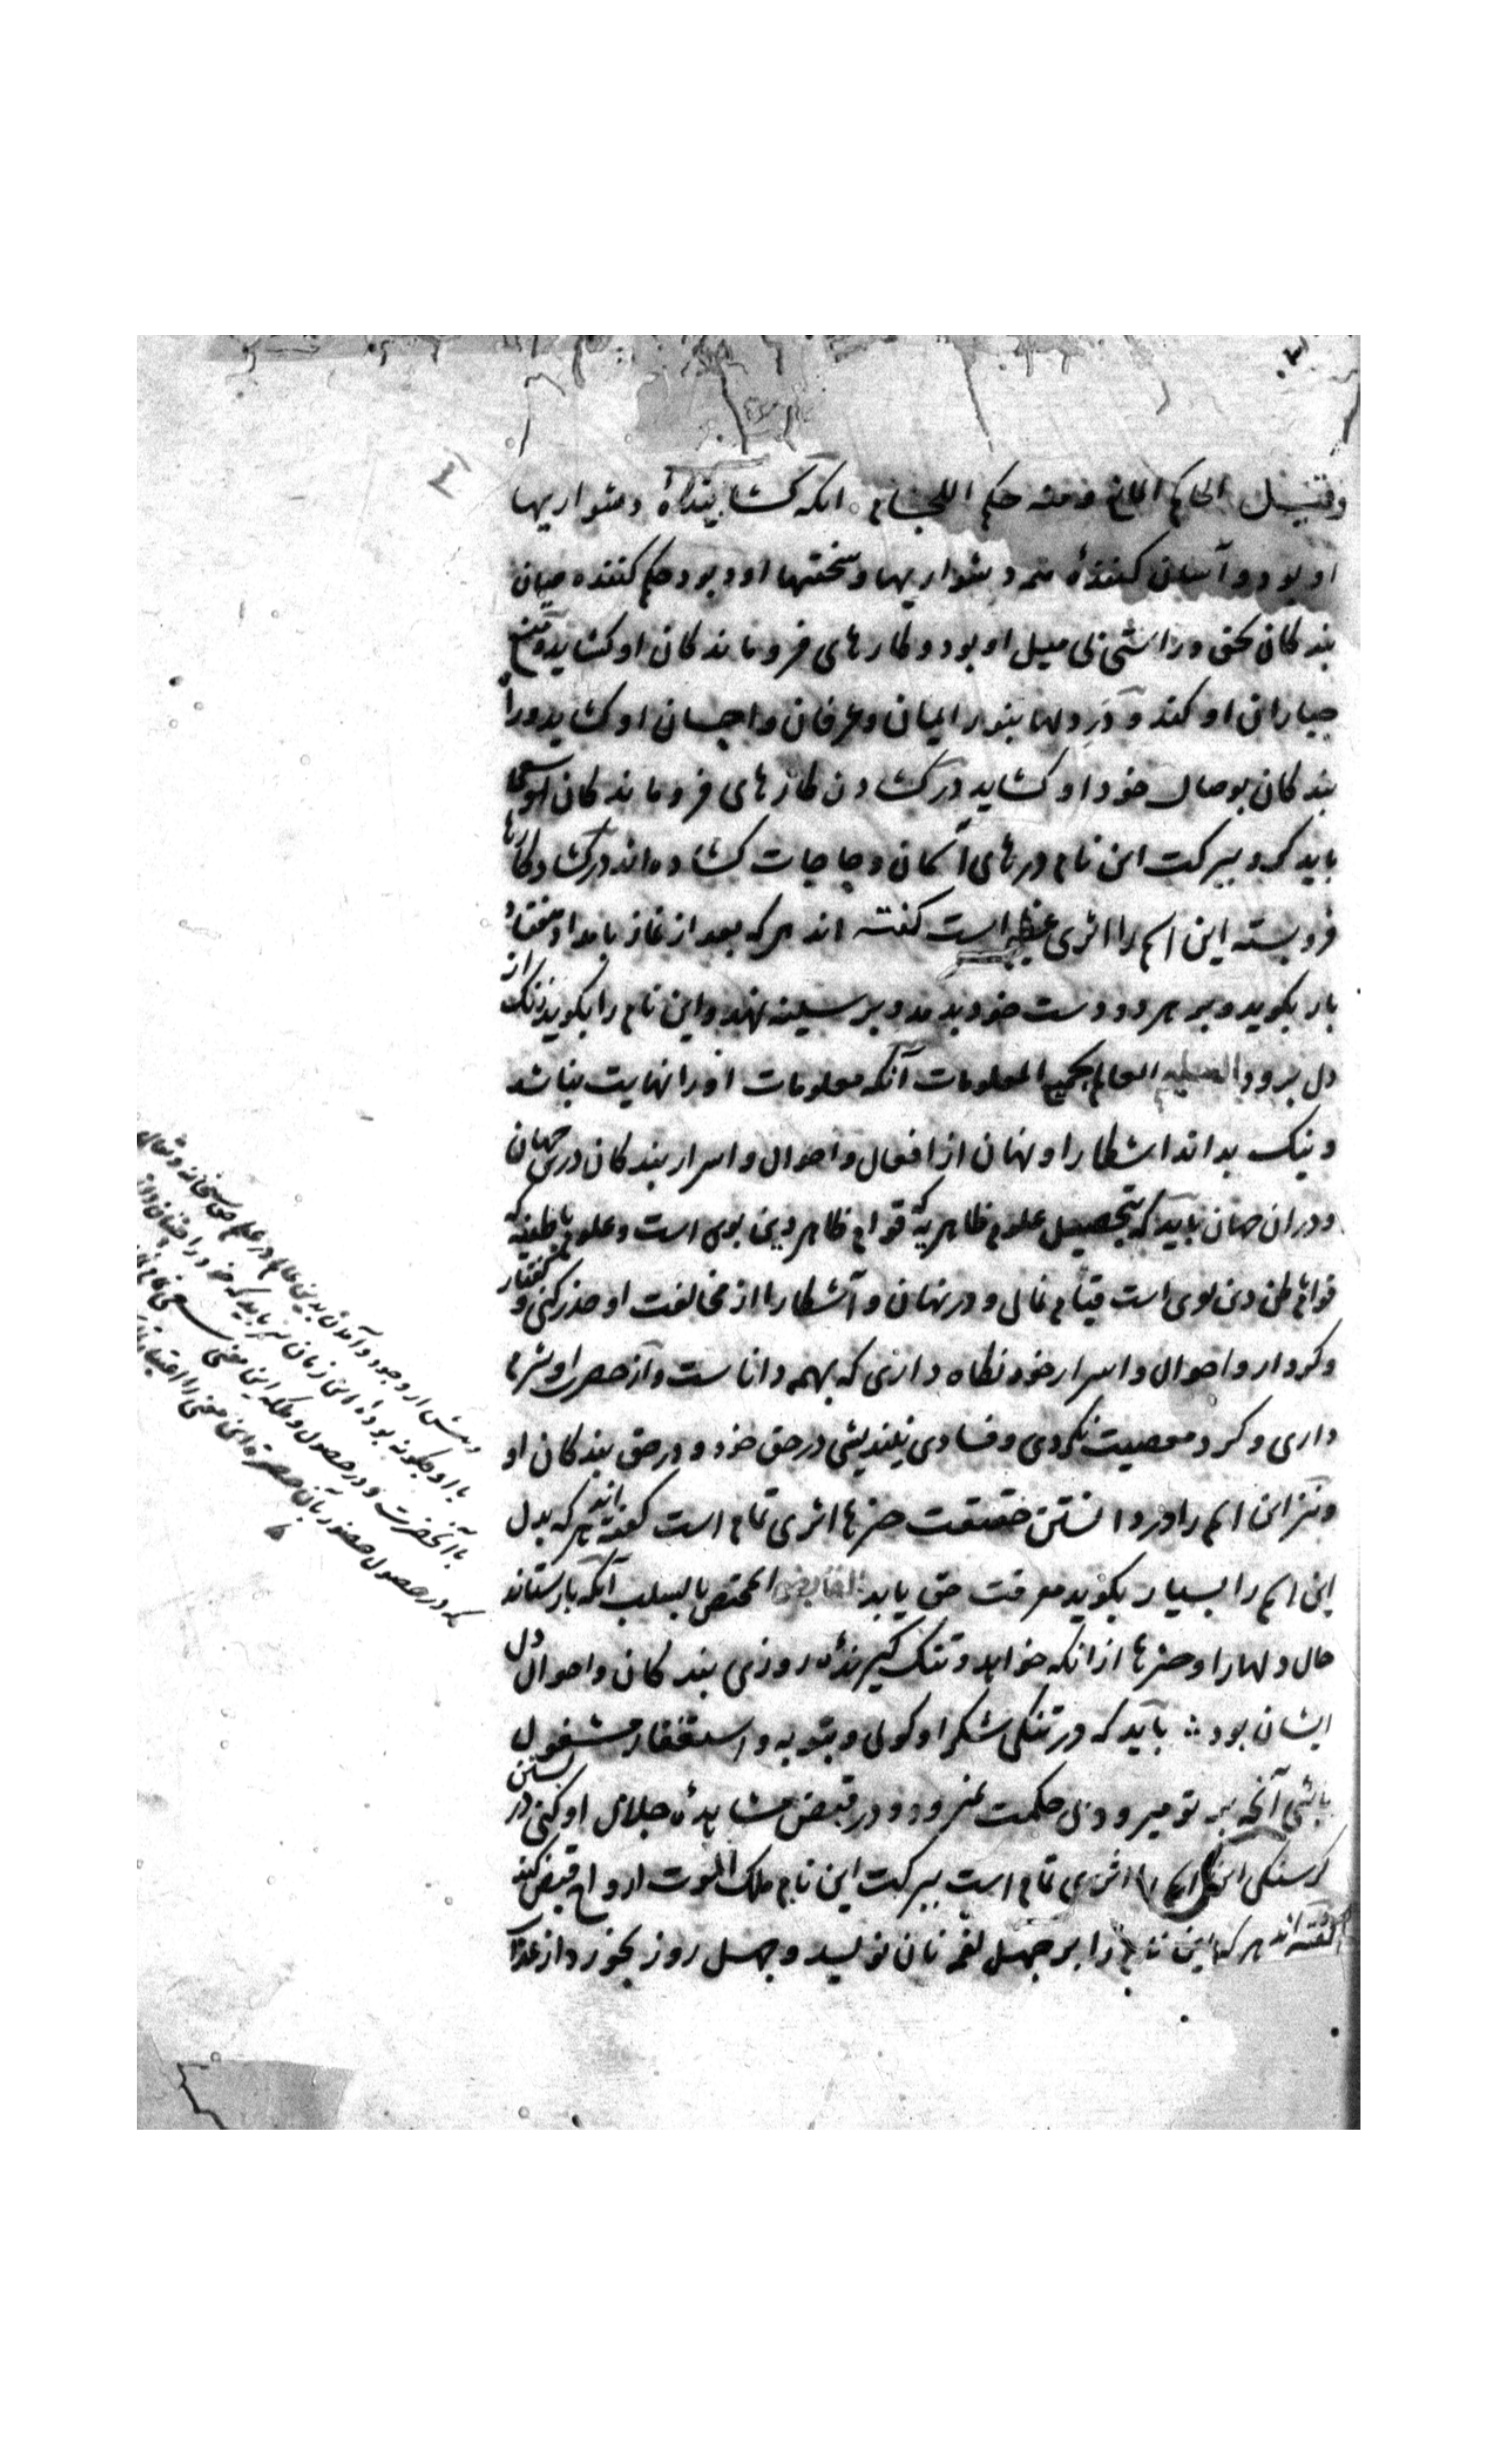 وقیل الحاکم المانع ومنه حکم اللجام انکه کشایندهٔ دشواریها
او بود و آسان کنندهٔ همه دشواریها و سختیها او بود حکم کننده میان
بندکان بحق و راستی بی میل او بود و کارهای فروماندکان او کشاید و منع
جباران او کند و در دلها بنور ایمان و عرفان و احسان او کشاید و را
بندکان بوصال خود او کشاید در کشادن کارهای فروماندکان او سعی
باید کرد ببرکت این نام درهای آسمان و حاجات کشاده اند در کشاد کارها
فرو بسته این اسم را اثری عظیم است کفته اند هر که بعد از نماز بامداد هفتاد
بار بکوید و بر هر دو دست خود بدمد و بر سینه نهد و این نام را بکوید زنک از
دل برود العلیم العالم بجمیع المعلومات آنکه معلومات او را نهایت نباشد
و نیک بداند آشکارا و نهان از افعال و احوال و اسرار بندکان درین جهان
و دران جهان باید که بتحصیل علوم ظاهریه که قوام ظاهر دین بوی است و علوم باطنیه که
قوام باطن دین بوی است قیام نمائی و در نهان و آشکارا از مخالفت او حذر کنی و کفتار
و کردار و احوال و اسرار خود نکاه داری که بهمه داناست و از حضرت او شرم
داری و کرد معصیت نکردی و فسادی نیندیشی در حق خود و در حق بندکان او
و نیز این اسم را در دانستن حقیقت چیزها اثری تمام است کفته اند هر که بدل
این اسم را بسیار بکوید معرفت حق یابد القابض المختص بالسلب آنکه بازستاند
حال دلها را و چیزها از انکه خواهد و تنک کیرندهٔ روزی بندکان و احوال دل
ایشان بود باید که در تنکی شکر او کوئی و بتوبه و استغفار مشغول
باشی آنچه بر تو میرود بی حکمت نمیرود و در قبض مشاهدهٔ جلال او کنی در
کرسنکی این اسم را اثری تمام است ببرکت این نام ملک الموت ارواح قبض کند
کفته اند هر که این نام را بر چهل لقمه نان نویسد و چهل روز بخورد از عذاب
و پیش از وجود و آمدن بدین عالم در علم حق سبحانه و تعالی
با او چکونه بوده این زمان نیز باید که خود را چنان داند
با آنحضرت و در حصول و ملکه این معنی سعی تمام نماید
که در حصول حضور بآن حضرت این معنی را اعتبار